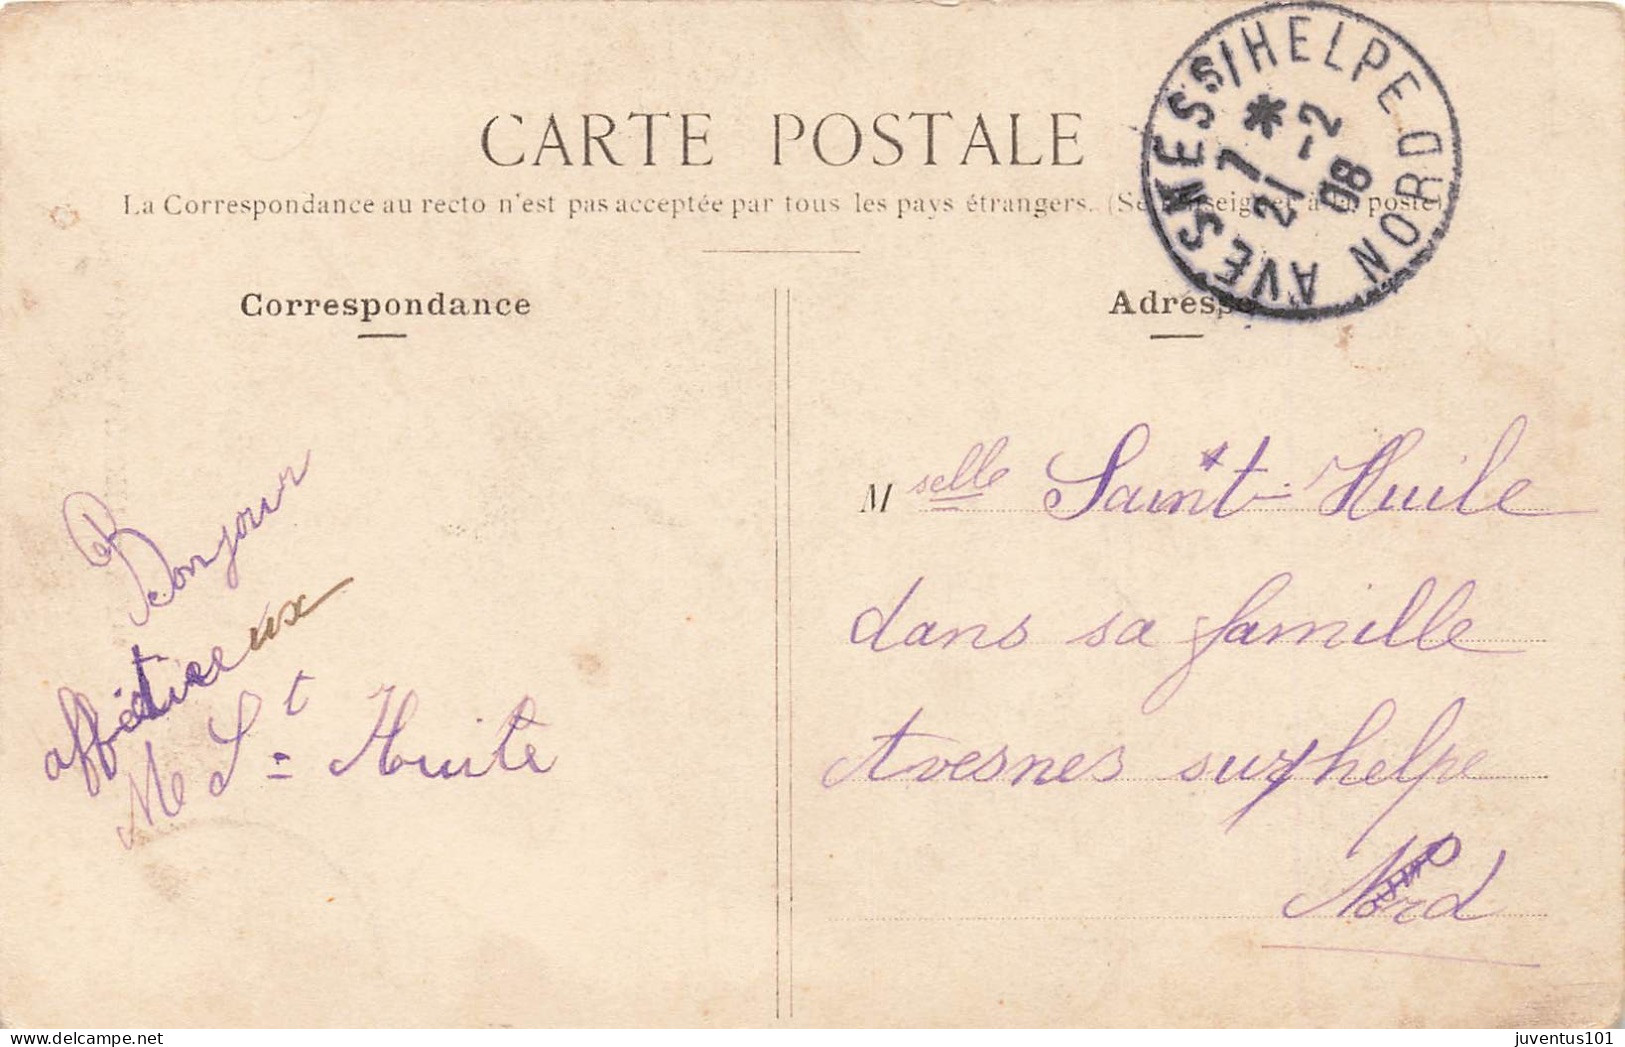 CARTE POSTALE
La Correspondance au recto n'est pas acceptée par tous les pays étrangers. (Se renseigner à la poste)
AVESNES S/ HELPE NORD
7 *
21 -2
08
Correspondance
Bonjour
affectueux
M St Huile
Adresse
Mselle Saint-Huile
dans sa famille
Avesnes sur helpe
Nord
juventus101